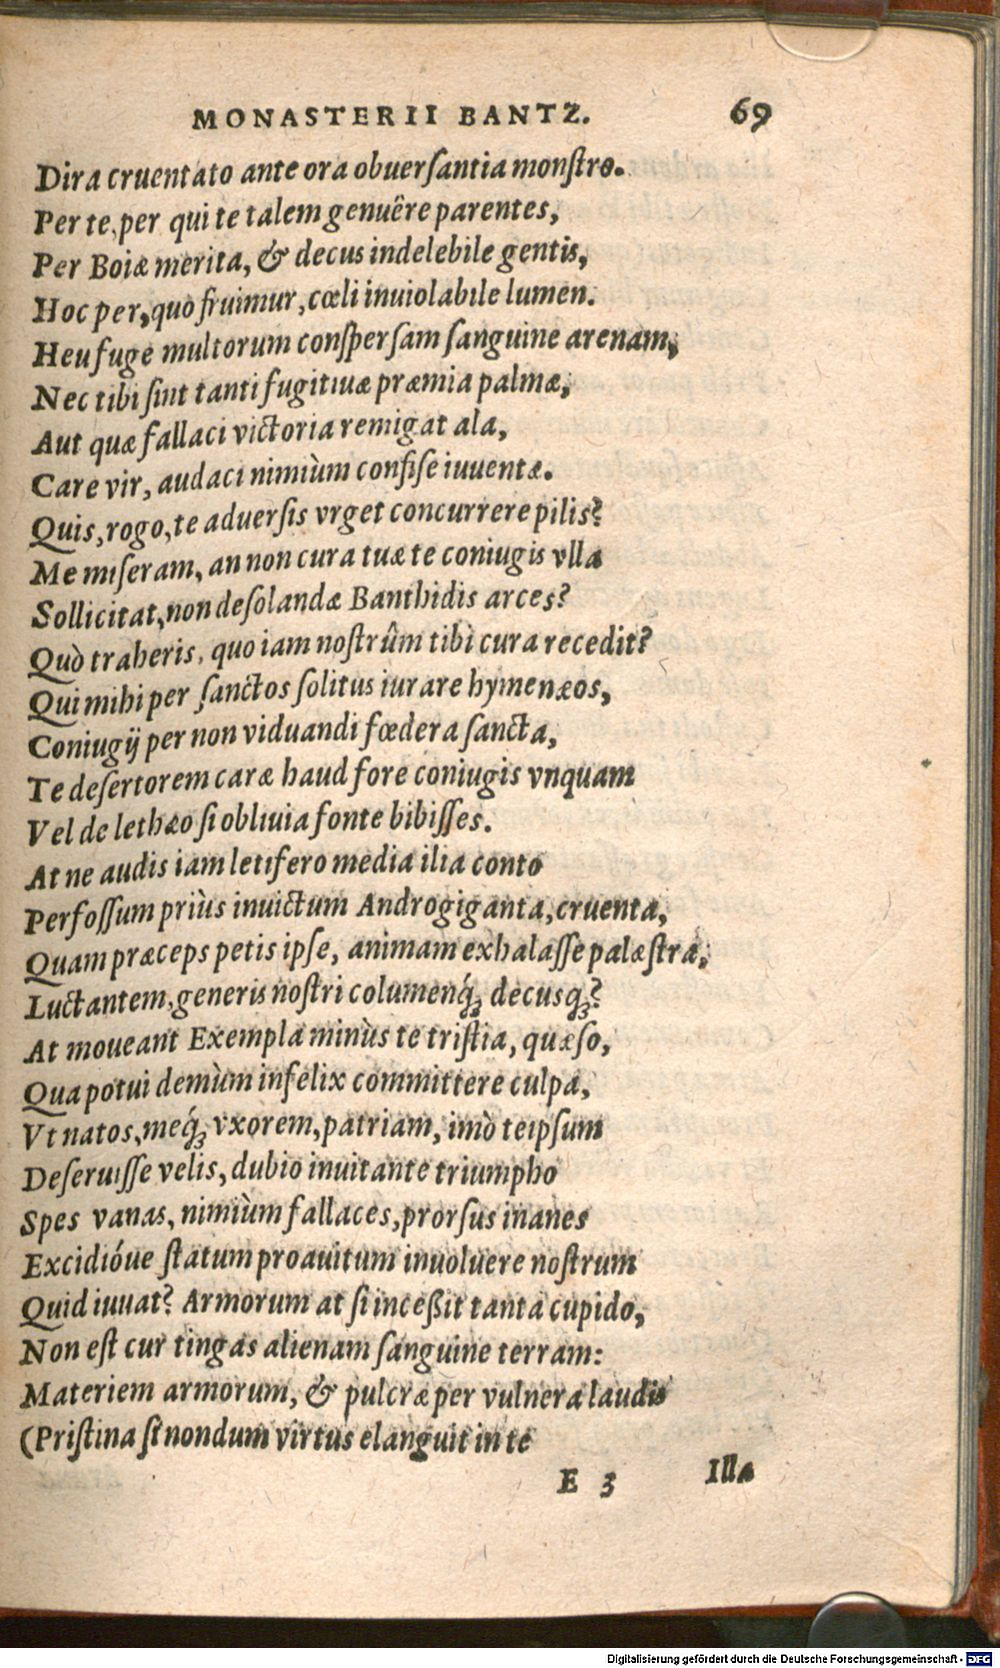 MONASTERII BANTZ. 69
Dira cruentato ante ora obuerſantia monſtro.
Per te, per qui te talem genuêre parentes,
Per Boiæ merita, & decus indelebile gentis,
Hoc per, quo fruimur, cœli inuiolabile lumen.
Heu fuge multorum conſperſam ſanguine arenam,
Nec tibi ſint tanti fugitiuæ præmia palmæ,
Aut quæ fallaci victoria remigat ala,
Care vir, audaci nimiùm confiſe iuuentæ.
Quis, rogo, te aduerſis vrget concurrere pilis?
Me miſeram, an non cura tuæ te coniugis vlla
Sollicitat, non deſolandæ Banthidis arces?
Quò traheris, quo iam noſtrûm tibi cura recedit?
Qui mihi per ſanctos ſolitus iurare hymenæos,
Coniugij per non viduandi fœdera ſancta,
Te deſertorem caræ haud fore coniugis vnquam
Vel de lethæo ſi obliuia fonte bibiſſes.
At ne audis iam letifero media ilia conto
Perfoſſum priùs inuictum Androgiganta, cruenta,
Quam præceps petis ipſe, animam exhalaſſe palæſtra,
Luctantem, generis noſtri columenq́; decusq́;?
At moueant Exempla minùs te triſtia, quæſo,
Qua potui demùm infelix committere culpa,
Vt natos, meq́; vxorem, patriam, imò teipſum
Deſeruiſſe velis, dubio inuitante triumpho
Spes vanas, nimiùm fallaces, prorſus inanes
Excidióue ſtatum proauitum inuoluere noſtrum
Quid iuuat? Armorum at ſi inceßit tanta cupido,
Non eſt cur tingas alienam ſanguine terram:
Materiem armorum, & pulcræ per vulnera laudis
(Priſtina ſi nondum virtus elanguit in te
E 3 Illa
Digitalisierung gefördert durch die Deutsche Forschungsgemeinschaft - DFG